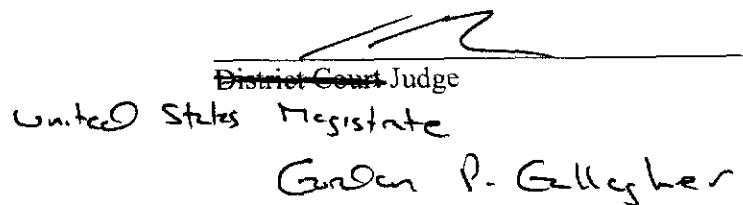 District Court Judge
United States Magistrate
Gordon P. Gallagher